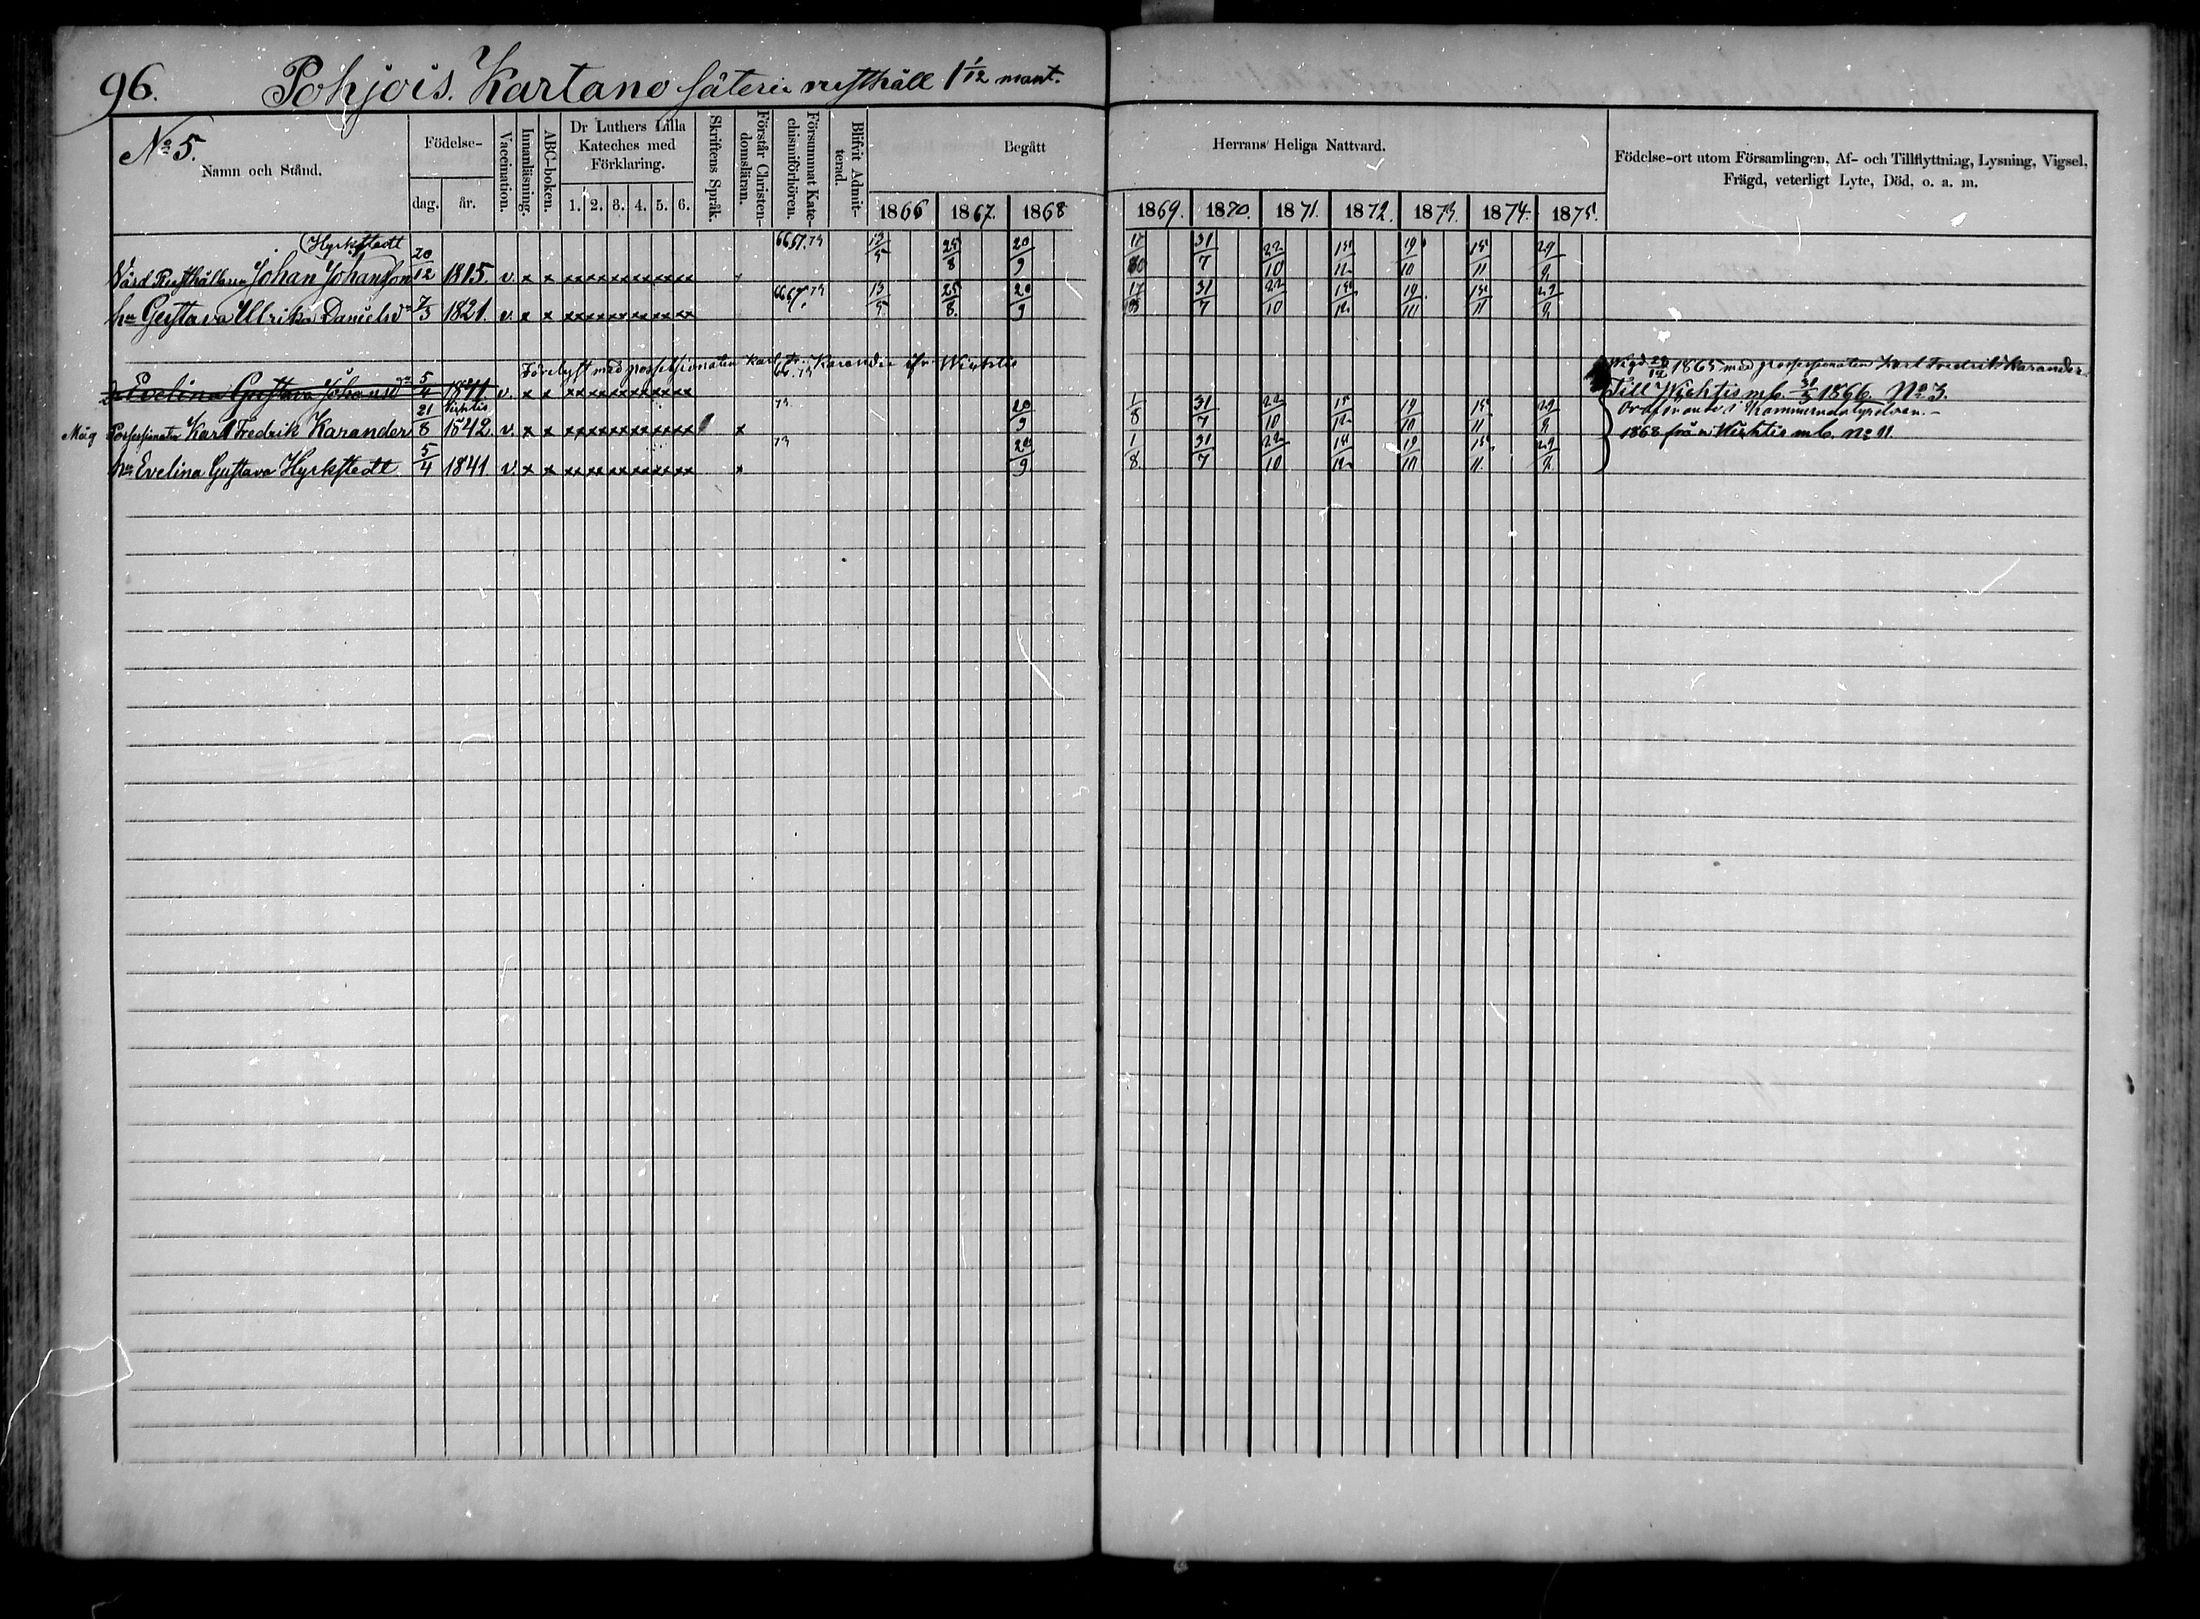 96. Pohjois. Kartano säterie rusthåll 1 1/12 mant.
No 5.
Namn och Stånd.
Födelse-
dag. år.
Vaccination.
Innanläsning.
ABC-boken.
Dr Luthers Lilla Kateches med Förklaring.
1. 2. 3. 4. 5. 6.
Skriftens Språk.
Förstår Christen-domsläran.
Försummat Kate-chismiförhören.
Blifvit Admit-terad.
Begått Herrans Heliga Nattvard.
1866 1867. 1868 1869. 1870. 1871. 1872. 1873. 1874. 1875.
Födelse-ort utom Församlingen, Af- och Tillflyttning, Lysning, Vigsel,
Frägd, veterligt Lyte, Död, o. a. m.
Hyrkstedt
Värd Rusthållaren Johan Johansson 20/12 1815. v. x x 66 67. 73 13/5 25/8 20/9 17/10 31/7 22/10 15/12 19/10 15/11 29/9
hu Gustava Ulrika Danielsdr 7/3 1821. v. x x 66 67. 73 13/5 25/8. 20/9 17/8 31/7 22/10 15/12 19/10 15/11 29/9
Förelyst med possessionaten Karl Fr. Karander ifr Wichtis
Wigd 28/12 1865 med possessionaten Karl Fredrik Karander
dr Evelina Gustava Johansdr 5/4 1841 v. x x 66. 73
Till Wichtis mb. 31/3 1866. No 3.
Wichtis
Måg Possessionaten Karl Fredrik Karander 21/8 1842. v. x x x 73 20/9 1/8 31/7 22/10 15/12 19/10 15/11 29/9
1868 från Wichtis mb. No 11.
hu Evelina Gustava Hyrkstedt 5/4 1841 v. x x x 73 20/9 1/8 31/7 22/10 15/12 19/10 15/11 29/9